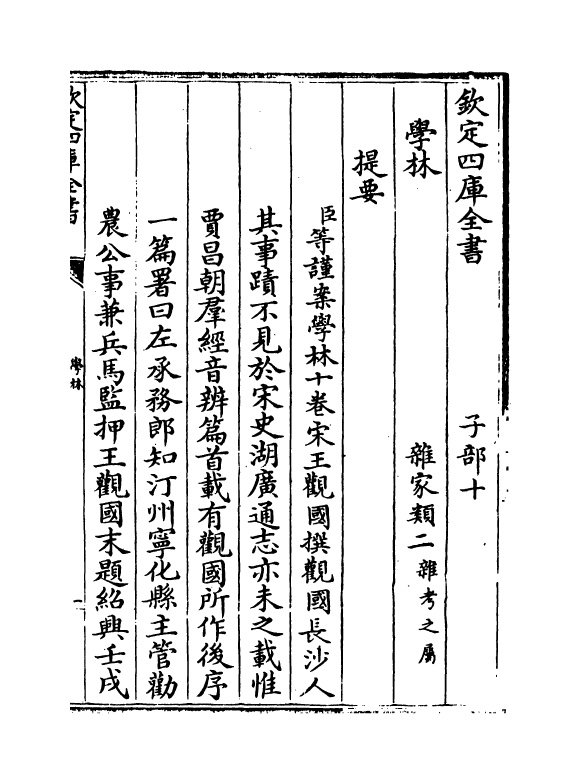 欽定四庫全書　子部十
學林　雜家類二雜考之屬
提要
臣等謹案學林十卷宋王觀國撰觀國長沙人
其事蹟不見於宋史湖廣通志亦未之載惟
賈昌朝羣經音辨篇首載有觀國所作後序
一篇署曰左承務郎知汀州寧化縣主管勸
農公事兼兵馬監押王觀國末題紹興壬戌
欽定四庫全書　學林　一